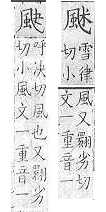 雪律切小風又翾劣切
文一重音一
呼決切風也又翾劣
切小風文一重音一